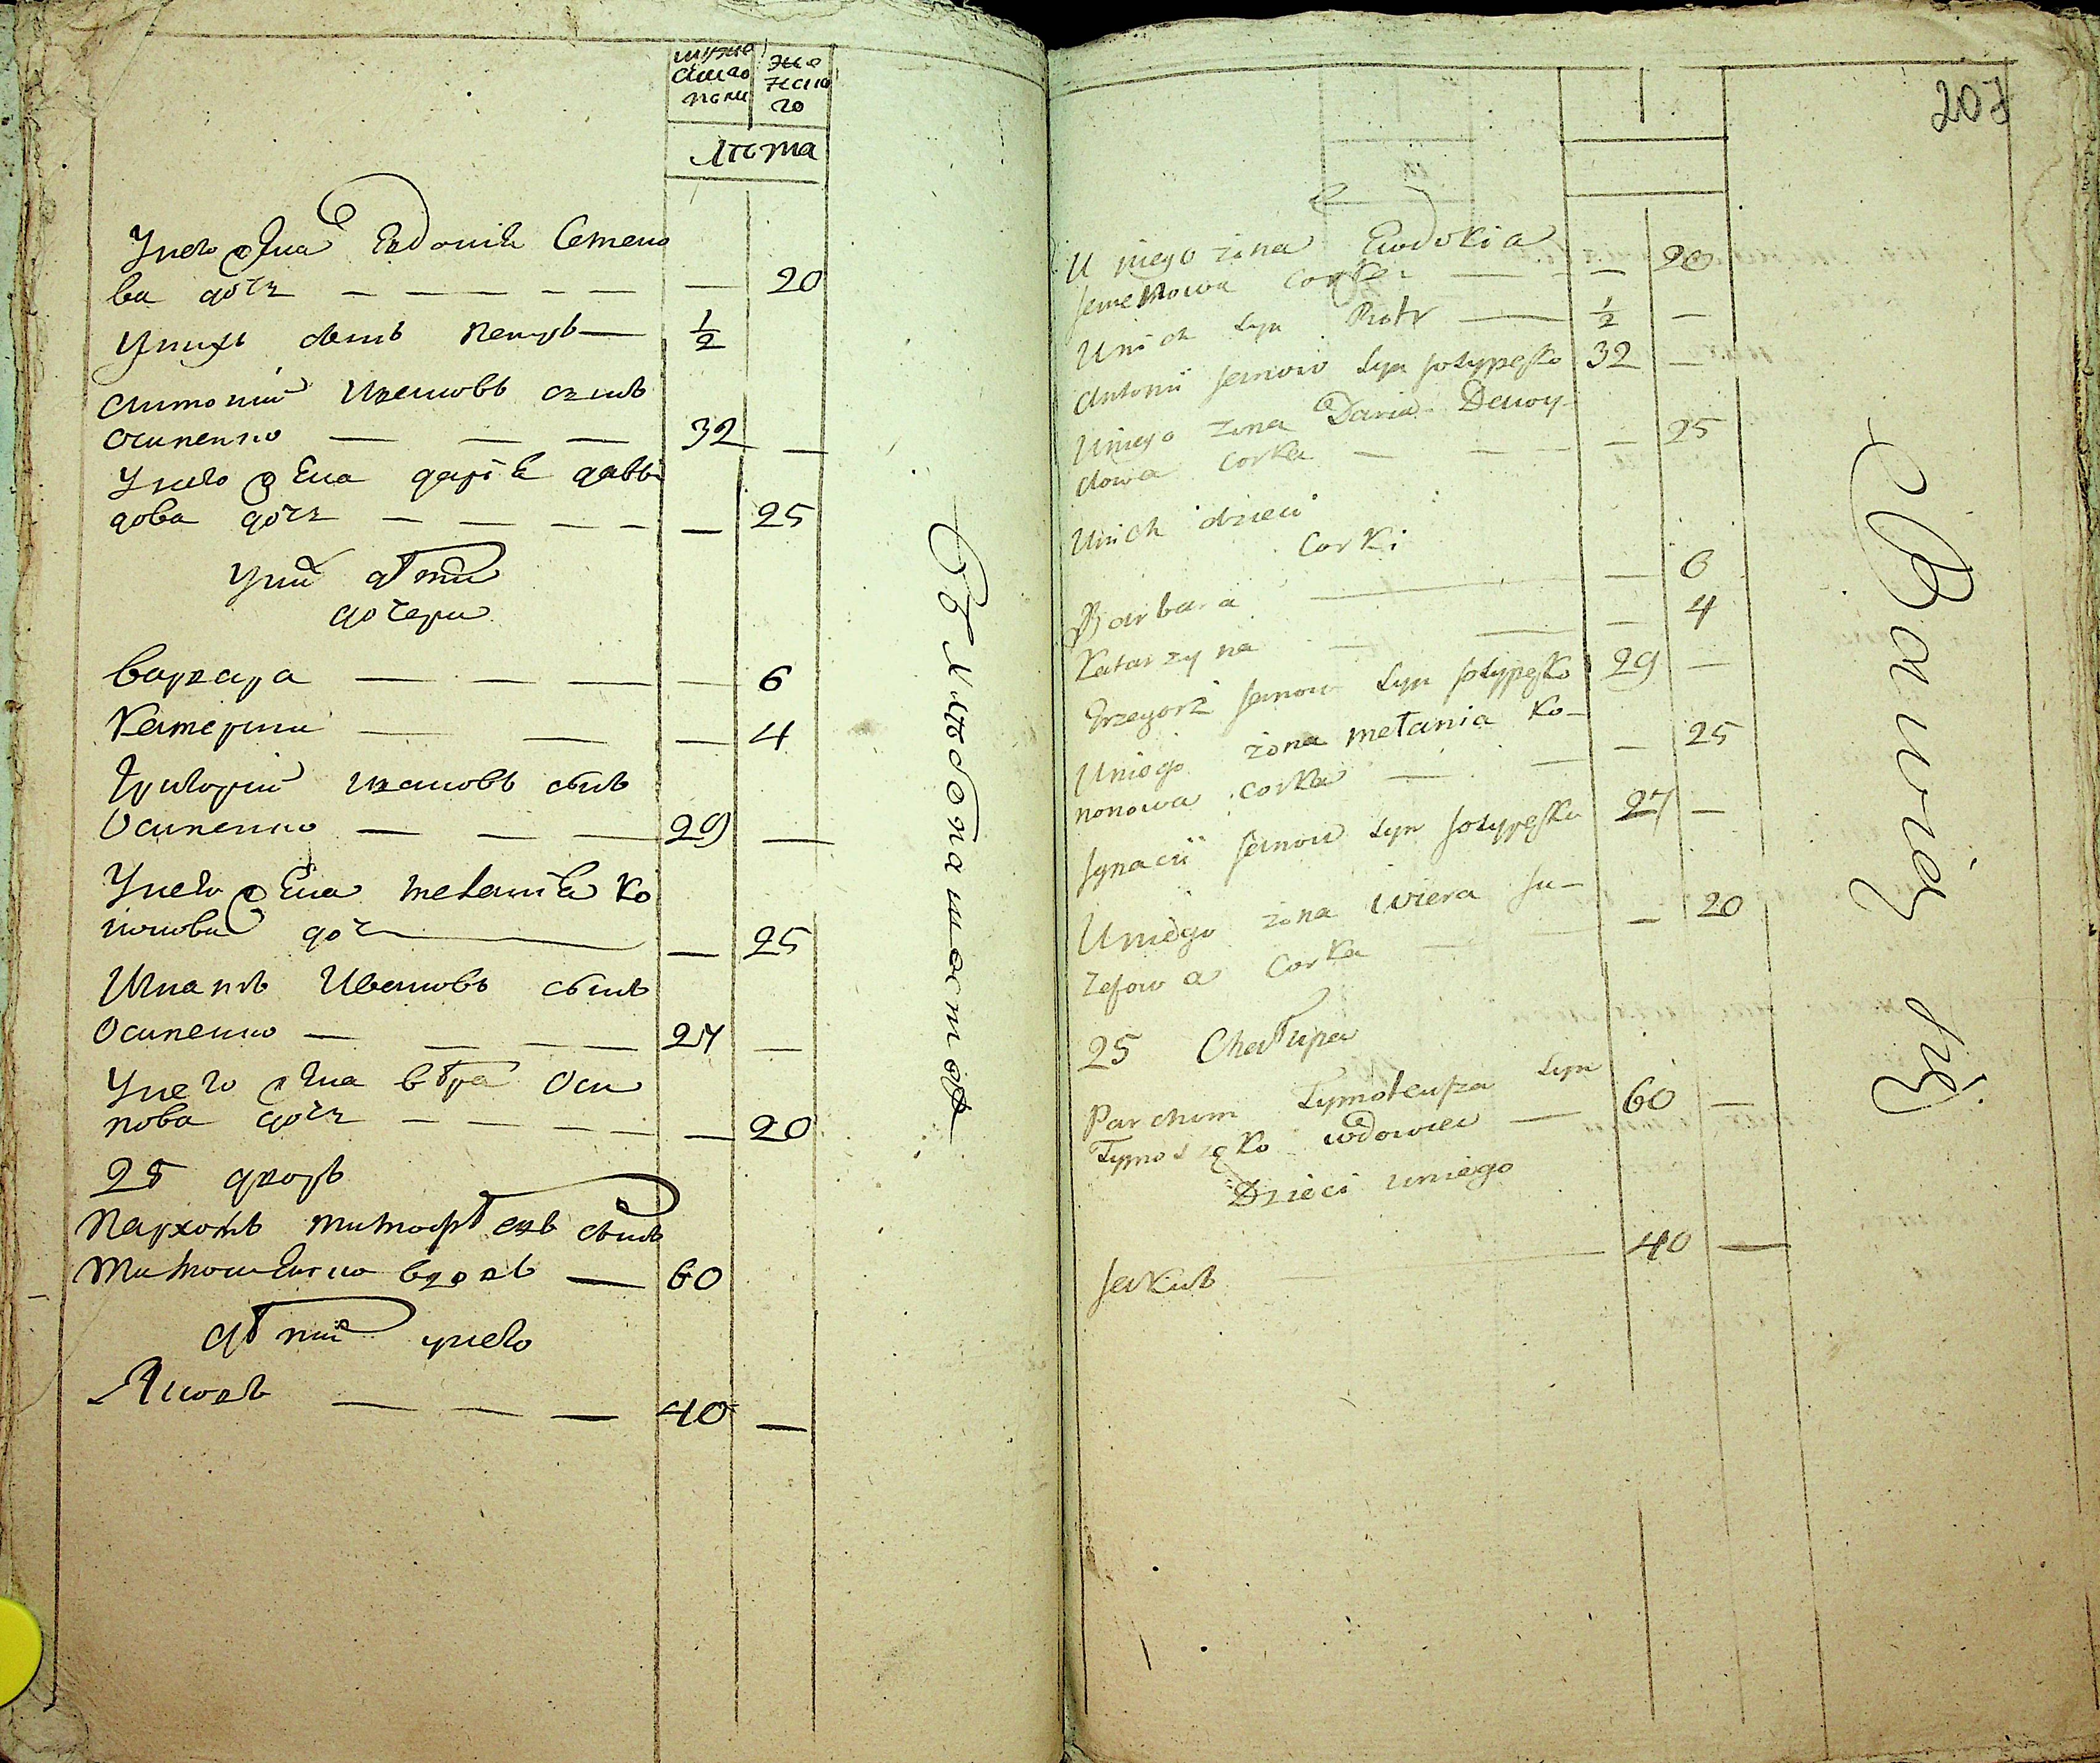 мужескаго полу
женскаго
Лѣта
У него жена Евдокия Семено
ва дочь — — — — — — 20
У нихъ сынъ Петръ — 1/2
Антоній Ивановъ сынъ
Осипенко — — — 32 —
У него жена Дарія Давы
дова дочь — — — — — 25
У ни дѣти
дочери
Варвара — — — — 6
Катерина — — — 4
Григорій Ивановъ сынъ
Осипенко — — — 29 —
У него жена Меланія Ко
нонова доч — — 25
Игнатъ Ивановъ сынъ
Осипенко — — — — 27 —
У него жена Вѣра Оси
пова дочь — — — — — 20
25 дворъ
Пархомъ Тимофѣевъ сынъ
Тимошенко вдовъ — 60
дѣти у него
Яковъ — — — 40 —
207
U niego zona Ewdokia
Semenowa Corka — — 20
U nich Syn Piotr — 1/2 —
Antonii Janow Syn Jozypęko 32 —
U niego zona Daria Dawy-
dowa Corka — — — — 25
U nich dzieci
Corki
Barbara — — 6
Katarzyna — — — 4
Grzegorz Janow Syn Jozypęko 29 —
U niego żona Metania Ko-
nonowa Corka — — — 25
Ignacii Janow Syn Jozypęko 27 —
U niego zona Wiera Ju-
zefowa Corka — — — 20
25 Chałupa
Parchom Tymoteusza Syn
Tymoszęko wdowiec — 60 —
Dzieci u niego
Jakub — 40 —